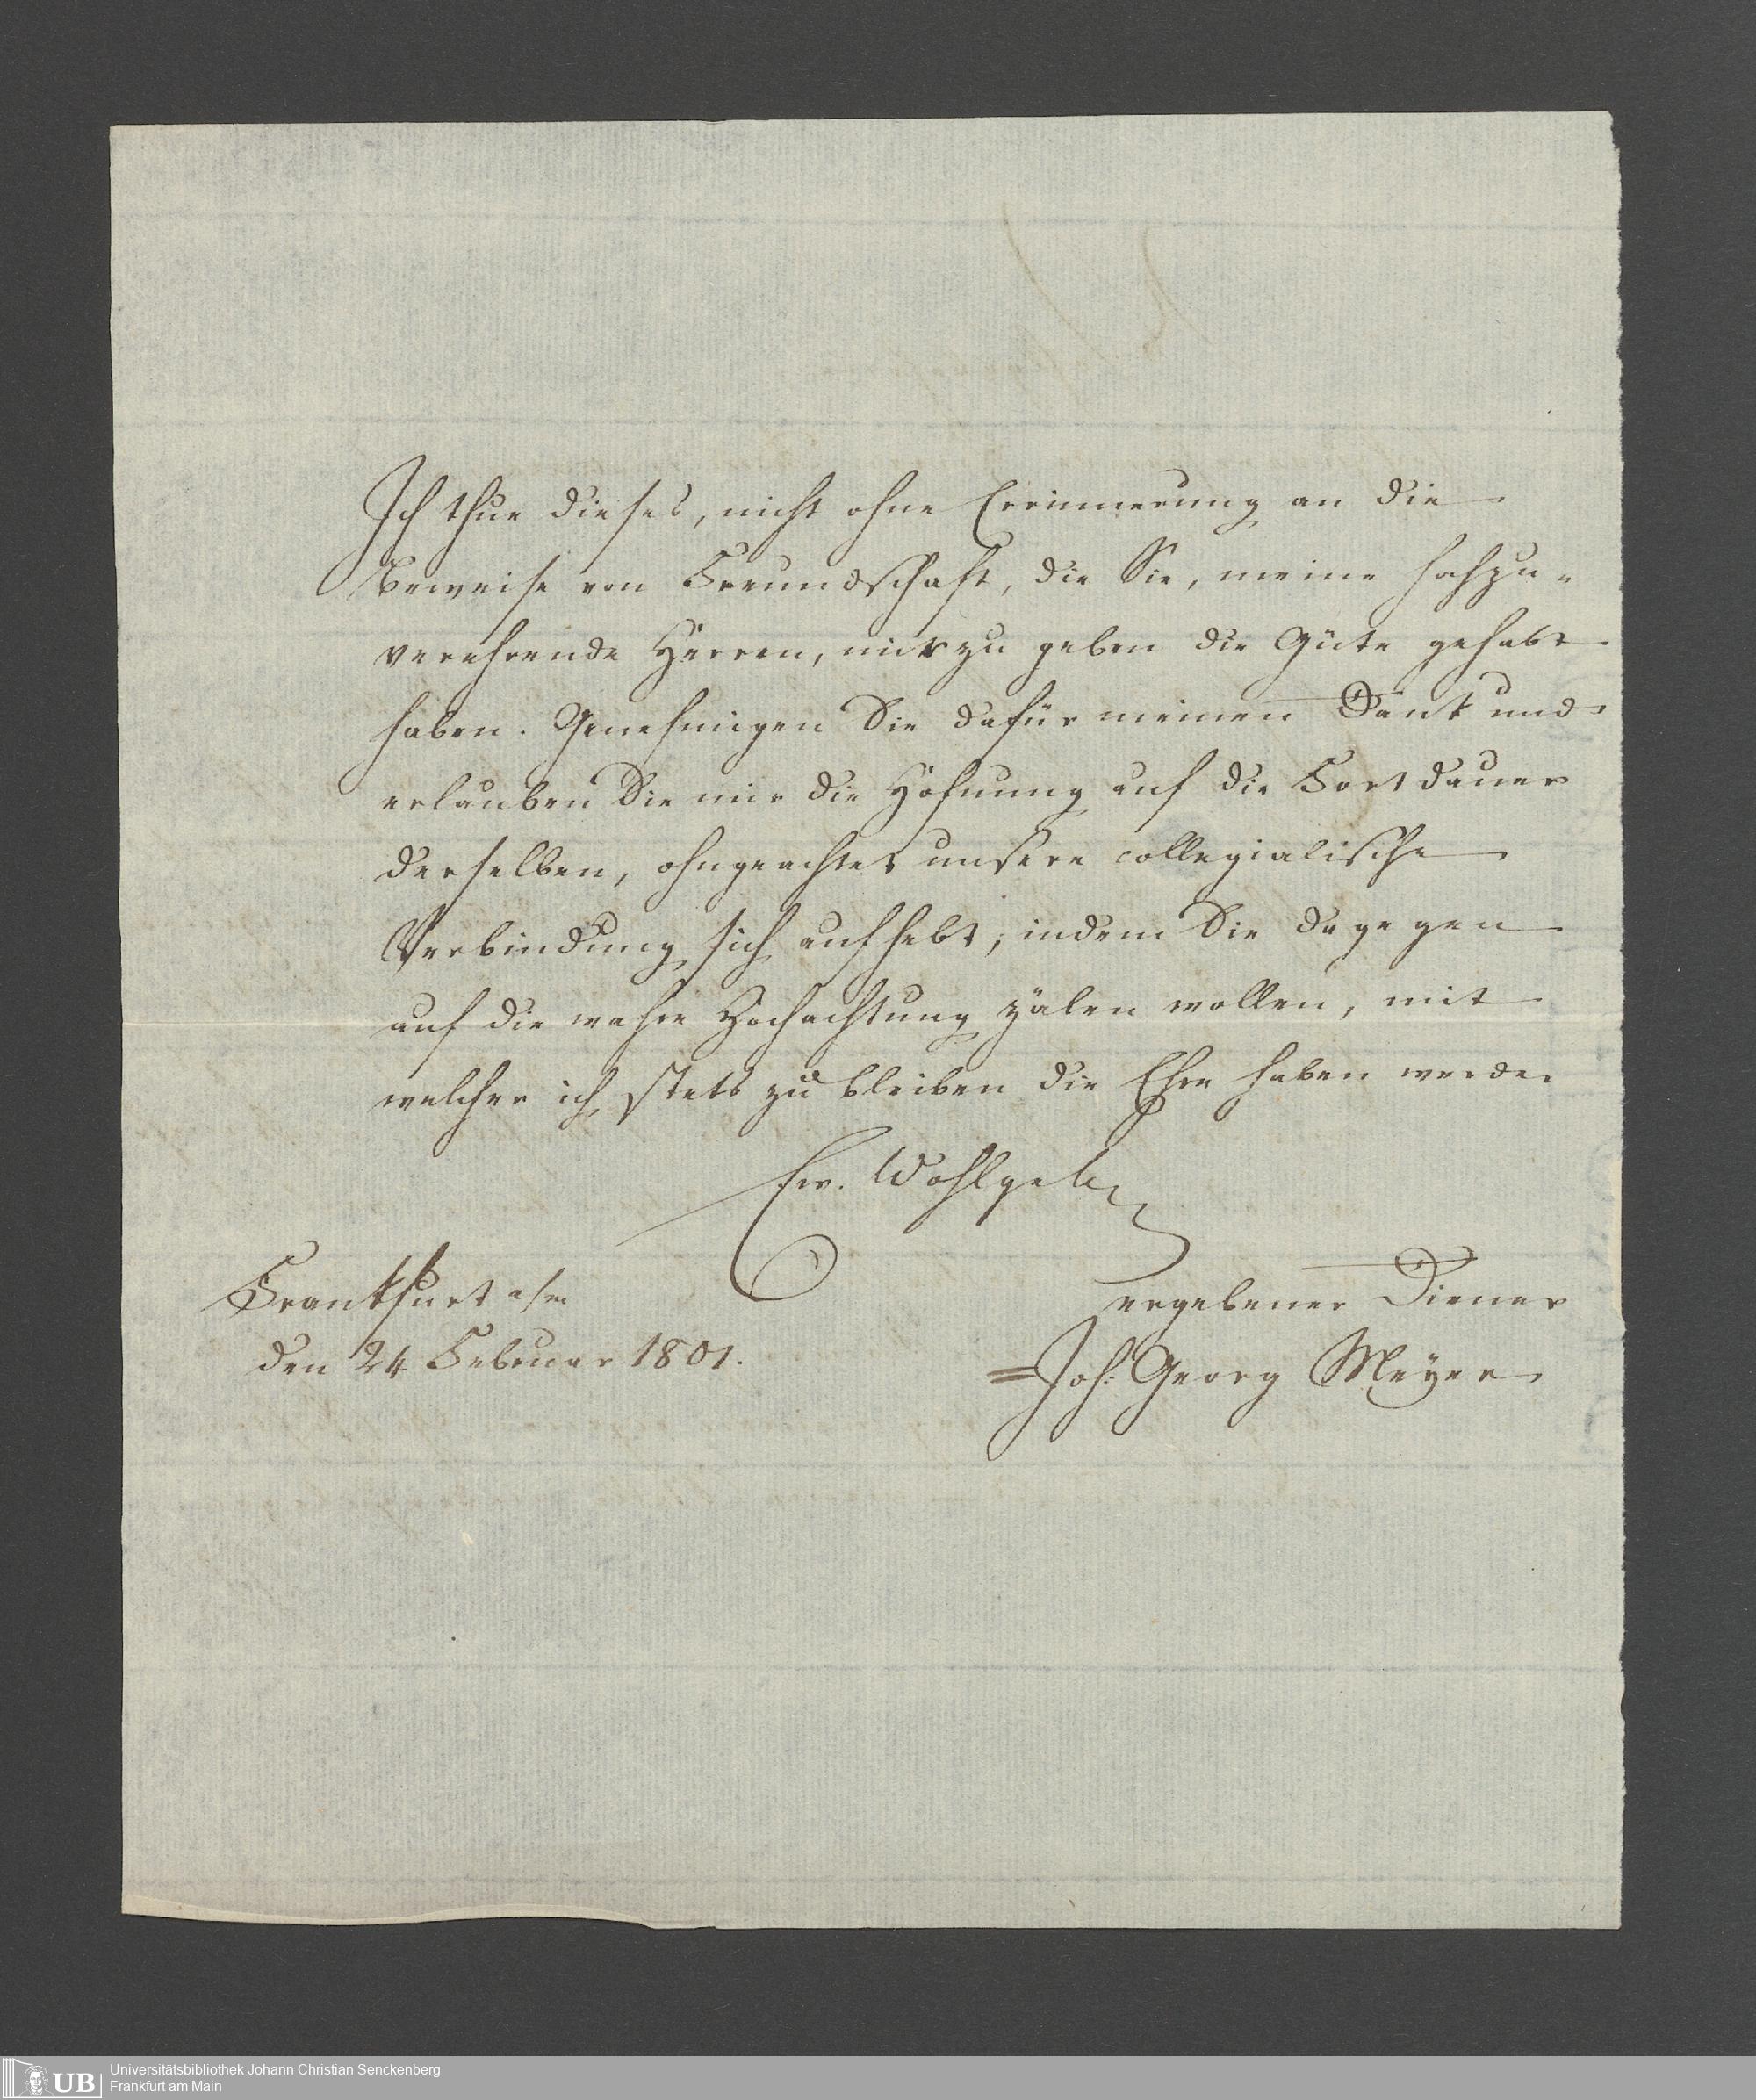 Ich thue dieses, nicht ohne Erinnerung an die
Beweise von Freundschaft, die Sie, meine hochzu-
verehrende Herren, mir zu geben die Güte gehabt
haben. Genehmigen Sie dafür meinen Dank und
erlauben Sie mir die Hofnung auf die Fortdauer
derselben, ohngeachtet unsere collegialische
Verbindung sich aufhebt; indem Sie dagegen
auf die wahre Hochachtung zälen wollen, mit
welcher ich stets zu bleiben die Ehre haben werde.
Ew. Wohlgeb
Frankfurt a/m
den 24 Februar 1801.
ergebener Diener
Joh: Georg Meyer
UB
Universitätsbibliothek Johann Christian Senckenberg
Frankfurt am Main